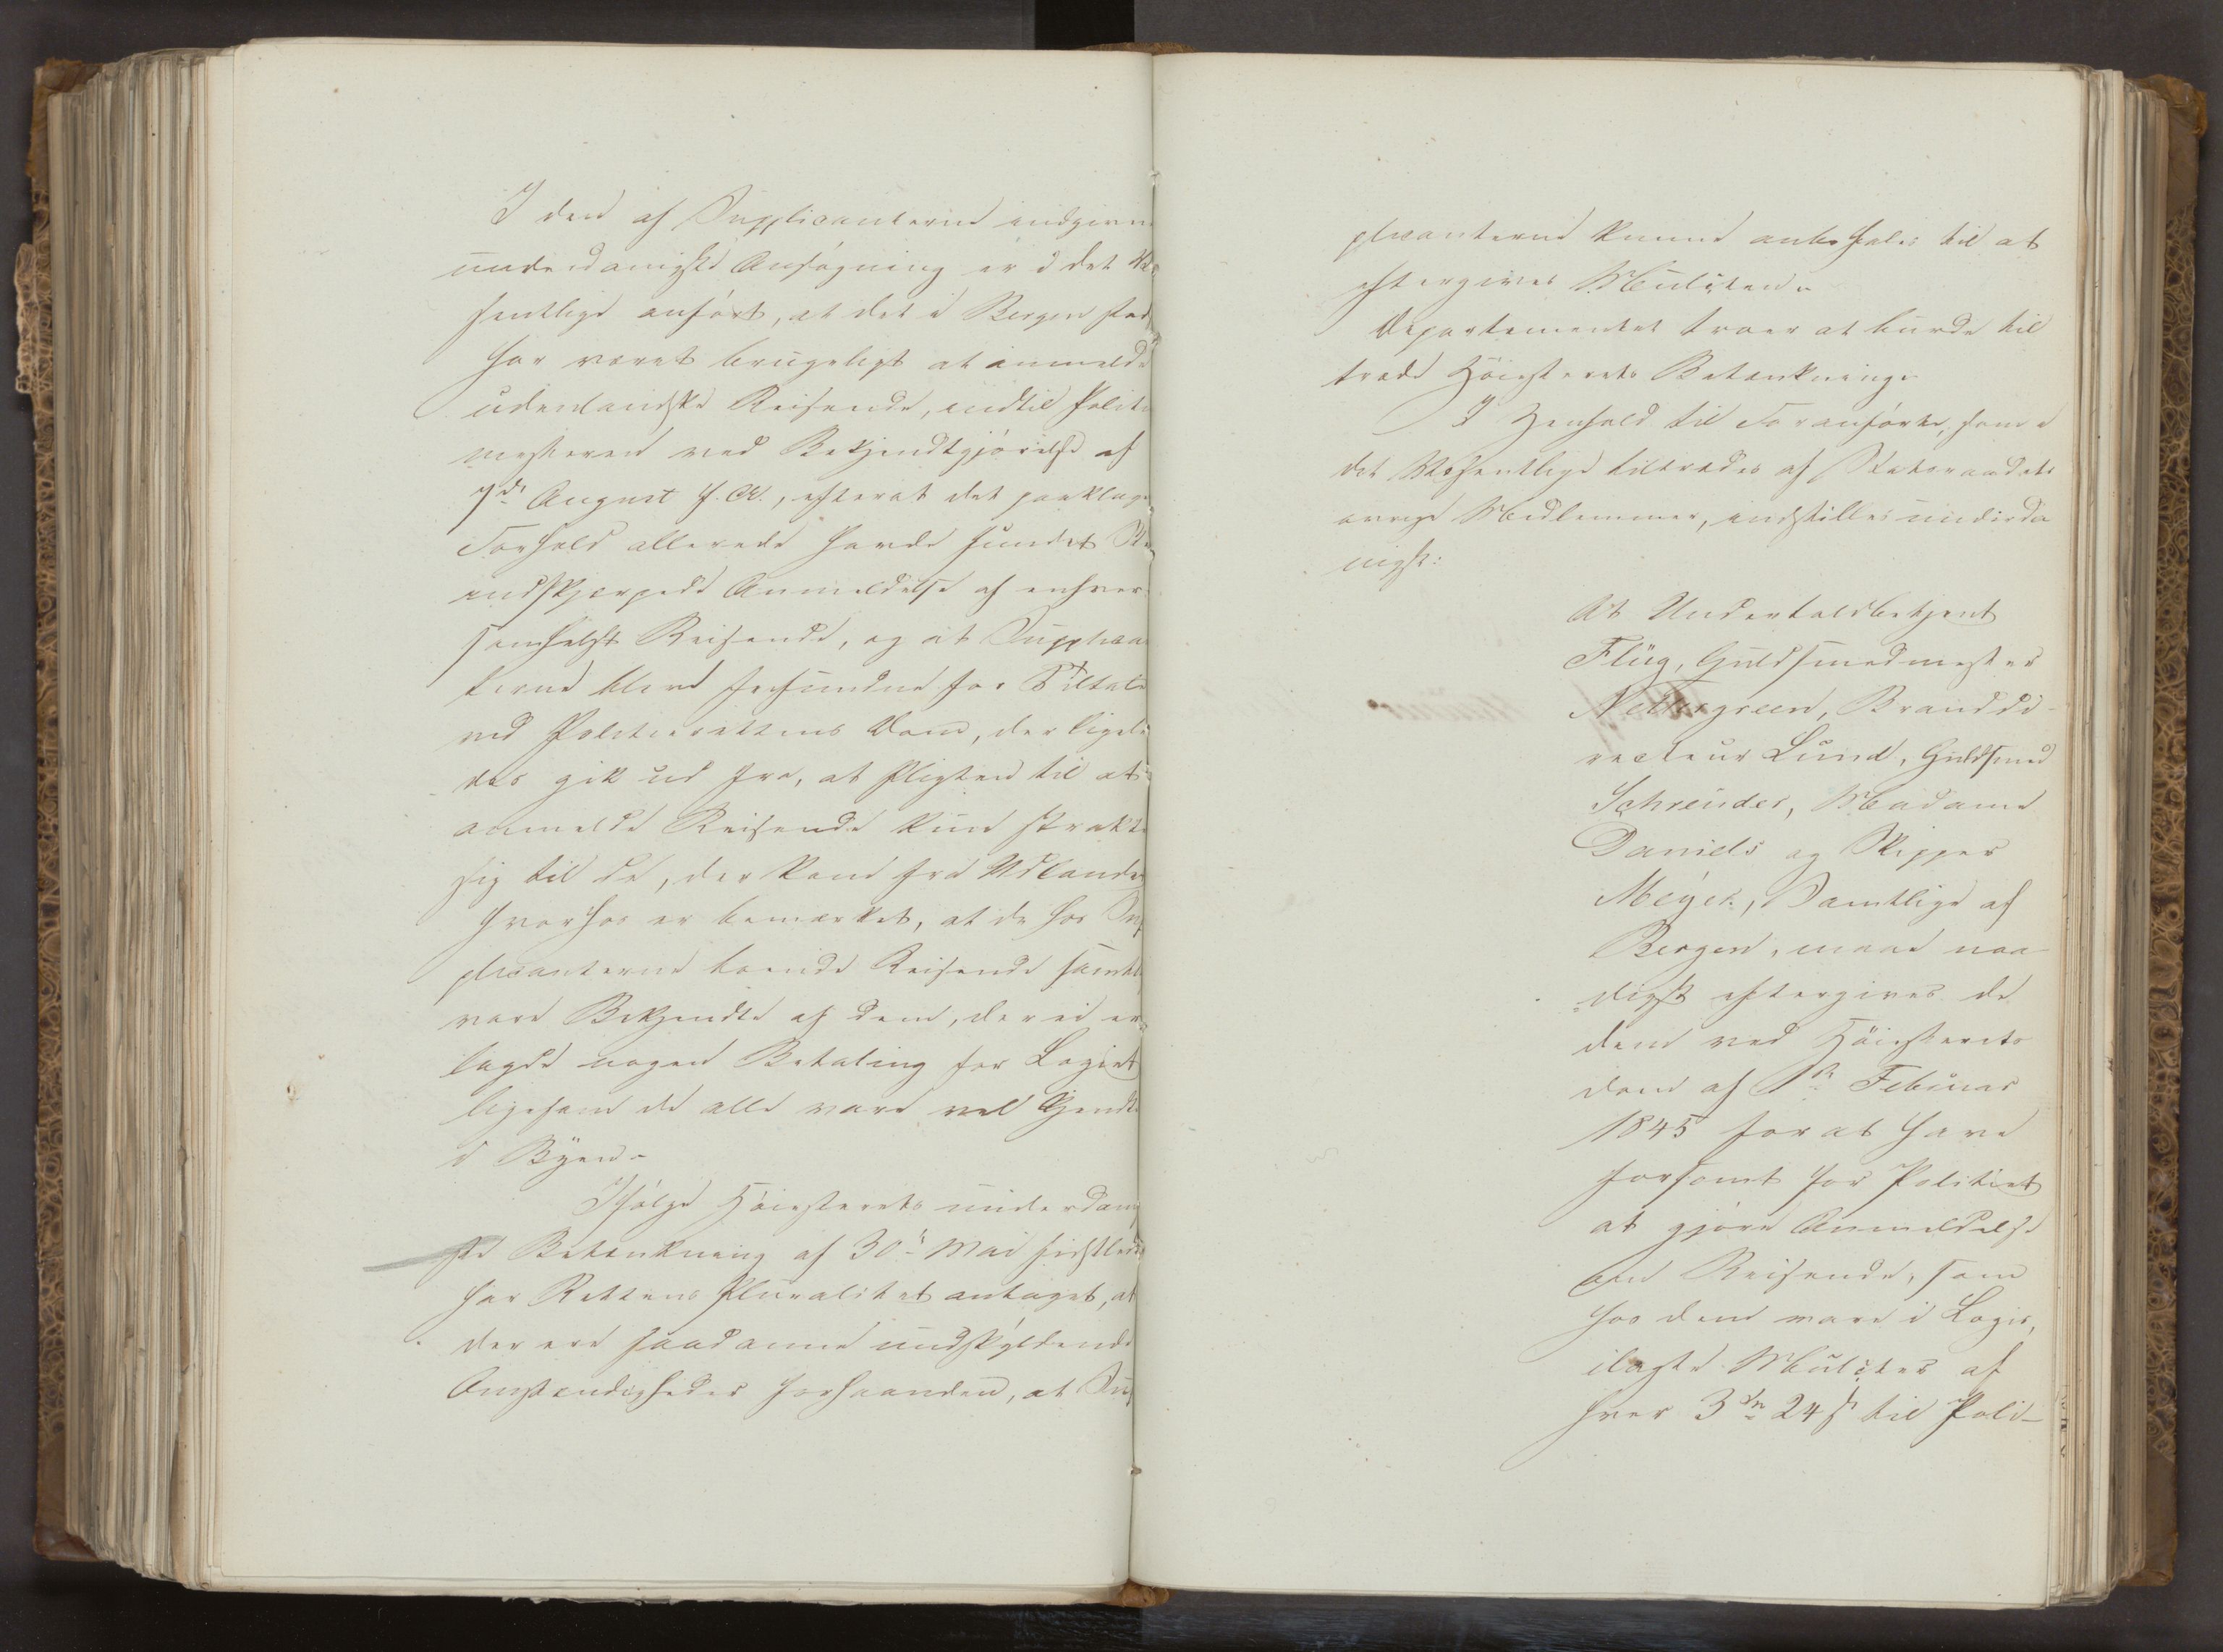 I den af Supplicanterne indgivne
underdanigste Ansøgning er i det Væ
sentlige anført, at det i Bergen sted
har været brugeligt at anmelde
udenlandske Reisende, indtil Politi
mesteren ved Bekjendtgjørelse af
7de August f. A., efterat det paaklage
Forhold allerede havde fundet St
indskjærpede Anmeldelse af enhver
somhelst Reisende, og at Supplican
terne bleve frifundne for Tiltale
ved Politierettens Dom, der ligele
des gik ud fra, at Pligten til at
anmelde Reisende kun strakte
sig til de, der kom fra Udlandet
hvorhos er bemærket, at de hos Sup
plicanterne boende Reisende samtl
vare Bekjendte af dem, der ei er
lagde nogen Betaling for Logiet
ligesom de alle vare vel kjendte
i Byen.
Ifølge Høiesterets underdanig
ste Betænkning af 30te Mai sidstleden
har Rettens Pluralitet antaget, at
der ere saadanne undskyldende
Omstændigheder forhaanden, at Sup
plicanterne kunne anbefales til at
eftergives Mulcten.
Departementet troer at burde til
træde Høiesterets Betænkning.
I Henhold til Foranførte, som i
det Væsentlige tiltrædes af Statsraadets
øvrige Medlemmer, indstilles underda
nigst:
At Undertoldbetjent
Flüg, Guldsmedmester
Nettergreen, Branddi-
recteur Lund, Guldsmed
Schreuder, Madame
Daniels og Skipper
Meyer, Samtlige af
Bergen, maae naa
digst eftergives de
dem ved Høiesterets
Dom af 1ste Februar
1845 for at have
forsømt for Politiet
at gjøre Anmeldelse
om Reisende, som
hos dem vare i Logis,
ilagte Mulcter af
hver 3 Spd 24 s til Poli-